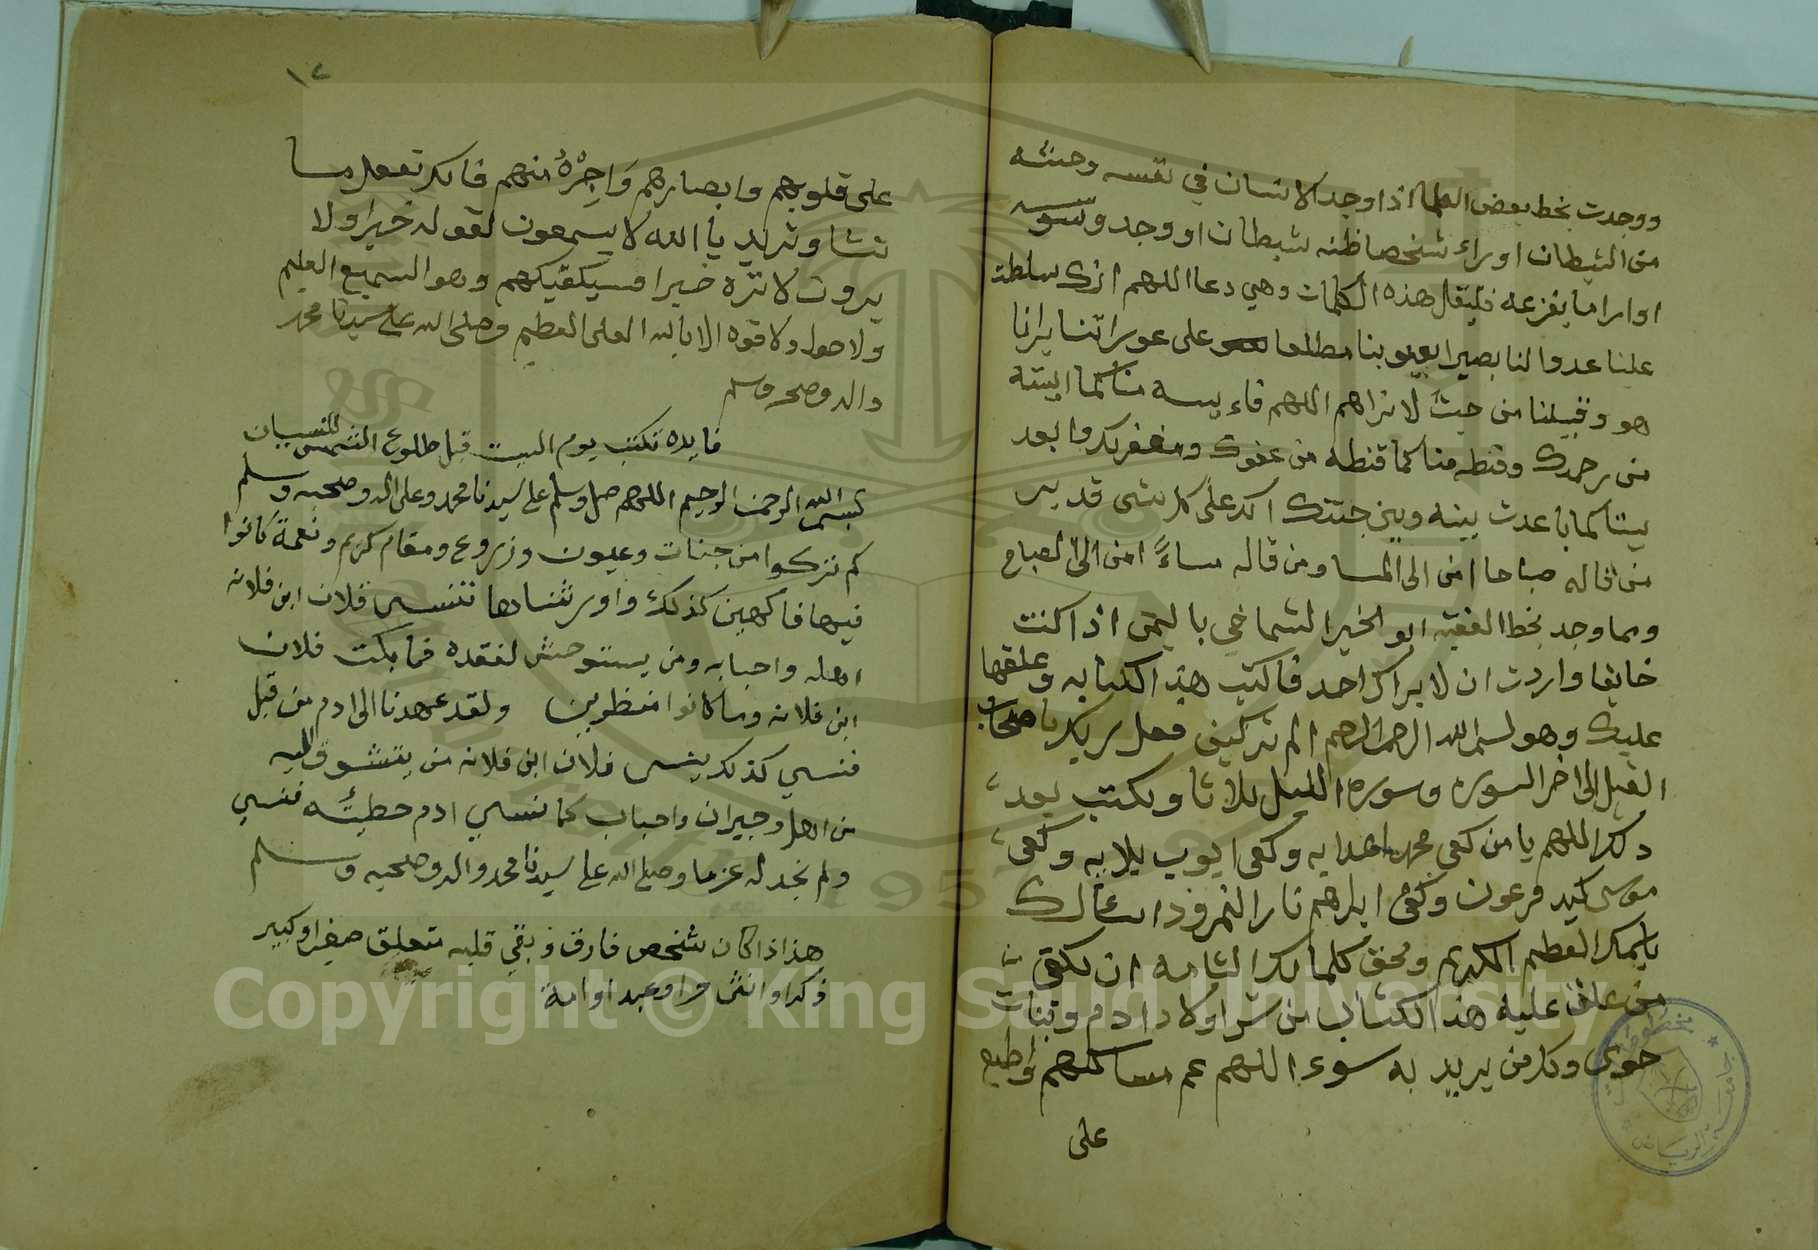 ووجدت بخط بعض العلما اذا وجد الانسان في نفسه وحشه
من الشيطان او راى شخصا ظنه شيطان او وجد وسوسه
او اراما يفزعه فليقل هذه الكلمات وهي دعا اللهم انك سلطة
علينا عدوا لنا بصيرا بعيوبنا مطلعا على عوراتنا يرانا
هو وقبيلنا من حيث لا نراهم اللهم فاءيسه منا كما ايسته
من رحمتك وقنطه منا كما قنطه من عفوك ومغفرتك وابعد
بيننا كما باعدت بينه وبين جنتك انك على كل شى قدير
من قاله صباحا امن الى المسا ومن قاله مساءً امن الى الصباح
ومما وجد بخط الفقيه ابو الخير الشماخي باليمن اذا كنت
خايفا واردت ان لا يراك احد فاكتب هذا الكتابه وعلقها
عليك وهو بسم الله الرحمن الرحيم الم تركيف فعل ربك باصحاب
الفيل الى اخر السوره وسورة الليل ثلاثا وتكتب بعد
ذلك اللهم يا من كفى محمد اعدايه وكفى ايوب بلايه وكفى
موسى كيد فرعون وكفى ابراهيم نار النمرود اسئالك
باسمك العظيم الكريم وبحق كلماتك التامه ان تكفي من
من علق عليه هذا الكتاب من شر اولاد ادم وبنات
حوى وكل من يريد به سوء اللهم عم مسالكهم واطبع
على
١٢
على قلوبهم وابصارهم وَاجِرْهُ منهم فانك تفعل ما
تشا وتريد يا الله لا يسمعون لقوله خيرا ولا
يروت لاثره خيرا فسيكفيكهم وهو السميع العليم
ولا حول ولا قوه الا بالله العلى العظيم وصلى الله على سيدنا محمد
واله وصحبه وسلم
فايده تكتب يوم السبت قبل طلوع الشمس للنسيان
بسم الله الرحمن الرحيم اللهم صل وسلم على سيدنا محمد وعلى اله وصحبه وسلم
كم تركوا من جنات وعيون وزروع ومقام كريم ونعمة كانوا
فيها فاكهين كذلك واورثناها تنسى فلان ابن فلانه
اهله واحبابه ومن يستوحش لفقده فما بكت فلان
ابن فلانه وما كانوا منظرين ولقد عهدنا الى ادم من قبل
فنسي كذلك ينسى فلان ابن فلانه من يتشوق اليه
من اهل وجيران واحباب كما نسي ادم خطيئته فنسي
ولم نجد له عزما وصلى الله على سيدنا محمد واله وصحبه وسلم
هذا اذا كان شخص فارق وبقي قلبه متعلق صغير او كبير
ذكر او انثى حر او عبد او امة
Copyright © King Saud University
1957